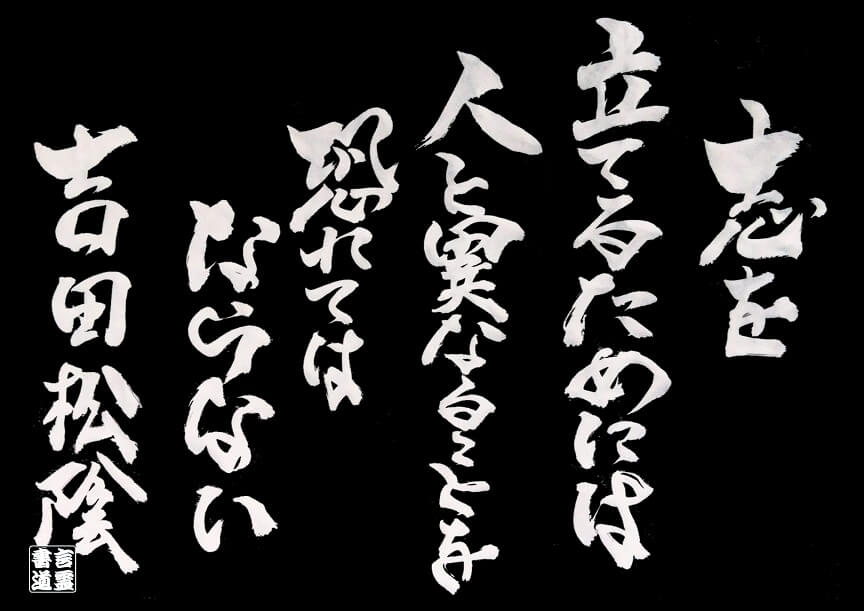 志を
立てるためには
人と異なることを
恐れては
ならない
吉田松陰
言霊
書道